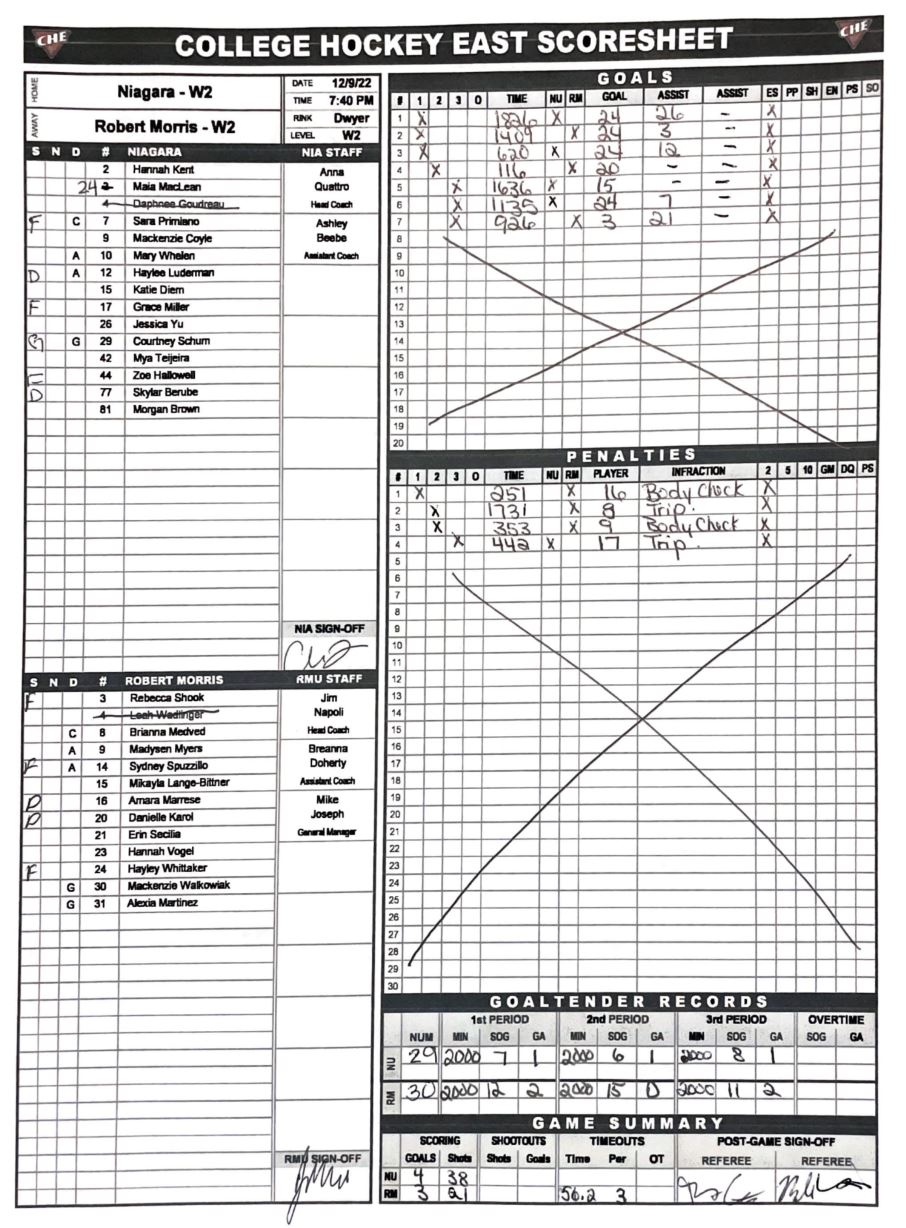 CHE COLLEGE HOCKEY EAST SCORESHEET CHE
HOME Niagara - W2 DATE 12/9/22
TIME 7:40 PM
AWAY Robert Morris - W2 RINK Dwyer
LEVEL W2
S N D # NIAGARA NIA STAFF
2 Hannah Kent Anna
24 2 Maia MacLean Quattro
4 Daphnee Goudreau Head Coach
F C 7 Sara Primiano Ashley
9 Mackenzie Coyle Beebe
A 10 Mary Whelen Assistant Coach
D A 12 Haylee Luderman
15 Katie Diem
F 17 Grace Miller
26 Jessica Yu
G G 29 Courtney Schum
42 Mya Teijeira
F 44 Zoe Hallowell
D 77 Skylar Berube
81 Morgan Brown
NIA SIGN-OFF
S N D # ROBERT MORRIS RMU STAFF
F 3 Rebecca Shook Jim
4 Leah Wadlinger Napoli
C 8 Brianna Medved Head Coach
A 9 Madysen Myers Breanna
F A 14 Sydney Spuzzillo Doherty
15 Mikayla Lange-Bittner Assistant Coach
D 16 Amara Marrese Mike
D 20 Danielle Karol Joseph
21 Erin Secilia General Manager
23 Hannah Vogel
F 24 Hayley Whittaker
G 30 Mackenzie Walkowiak
G 31 Alexia Martinez
RMU SIGN-OFF
GOALS
# 1 2 3 O TIME NU RM GOAL ASSIST ASSIST ES PP SH EN PS SO
1 X 1826 X 24 26 - X
2 X 1409 X 24 3 - X
3 X 620 X 24 12 - X
4 X 116 X 20 - - X
5 X 1636 X 15 - - X
6 X 1135 X 24 7 - X
7 X 926 X 3 21 - X
8
9
10
11
12
13
14
15
16
17
18
19
20
PENALTIES
# 1 2 3 O TIME NU RM PLAYER INFRACTION 2 5 10 GM DQ PS
1 X 251 X 16 Body Check X
2 X 1731 X 8 Trip. X
3 X 353 X 9 Body Check X
4 X 442 X 17 Trip. X
5
6
7
8
9
10
11
12
13
14
15
16
17
18
19
20
21
22
23
24
25
26
27
28
29
30
GOALTENDER RECORDS
1st PERIOD 2nd PERIOD 3rd PERIOD OVERTIME
NUM MIN SOG GA MIN SOG GA MIN SOG GA SOG GA
NU 29 2000 7 1 2000 6 1 2000 8 1
RM 30 2000 12 2 2000 15 0 2000 11 2
GAME SUMMARY
SCORING SHOOTOUTS TIMEOUTS POST-GAME SIGN-OFF
GOALS Shots Shots Goals Time Per OT REFEREE REFEREE
NU 4 38
RM 3 21 56.2 3